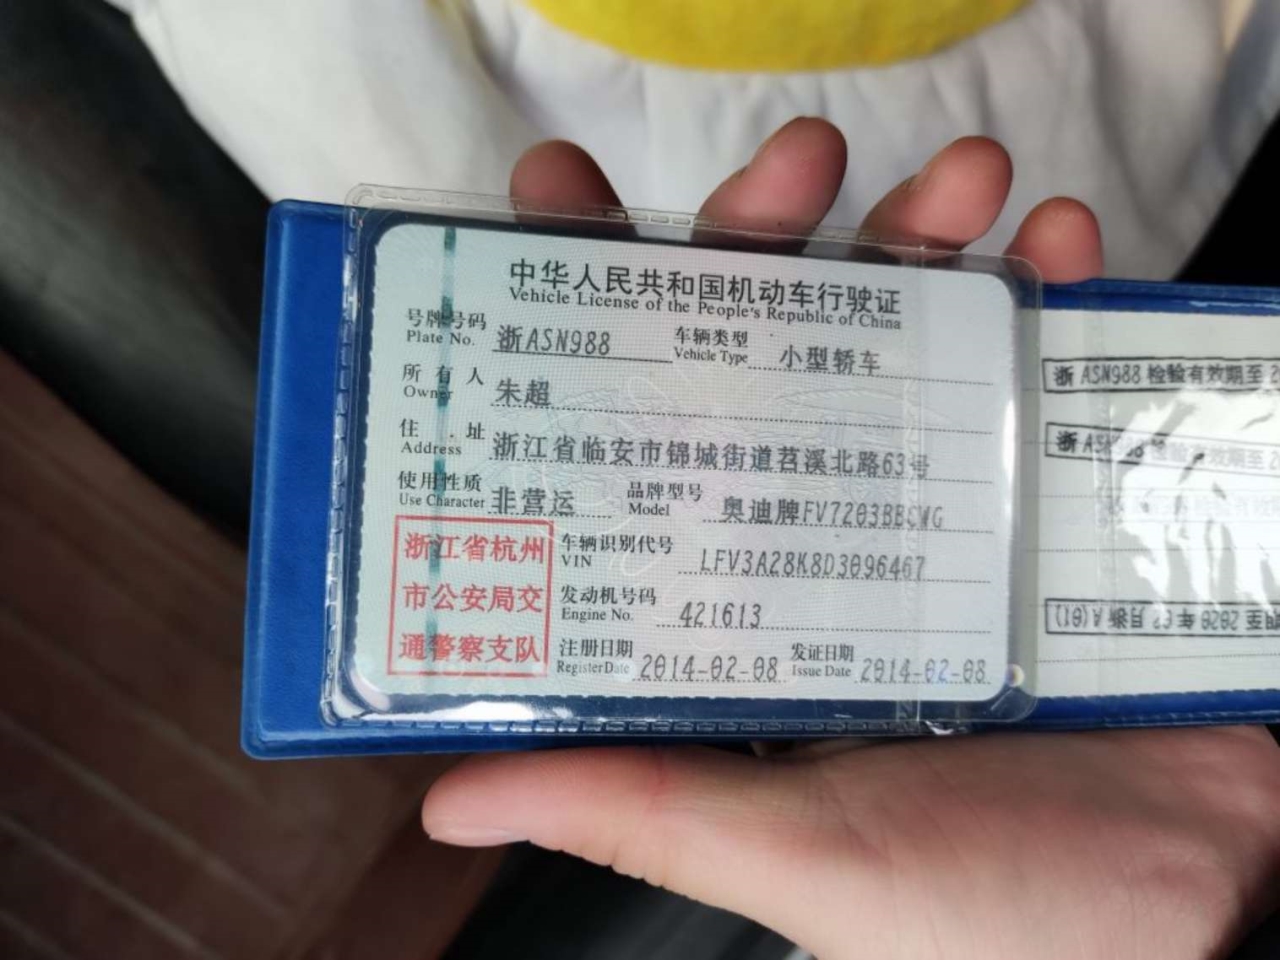 中华人民共和国机动车行驶证
Vehicle License of the People's Republic of China
号牌号码 浙ASN988 车辆类型 小型轿车
Plate No. Vehicle Type
所有人 朱超
Owner
住址 浙江省临安市锦城街道苕溪北路63号
Address
使用性质 非营运 品牌型号 奥迪牌FV7203BBCWG
Use Character Model
浙江省杭州
市公安局交
通警察支队
车辆识别代号 LFV3A28K8D3096467
VIN
发动机号码 421613
Engine No.
注册日期 2014-02-08 发证日期 2014-02-08
Register Date Issue Date
浙ASN988 检验有效期至
浙ASN988 检验有效期至
至 2020 年 02 月浙A(01)